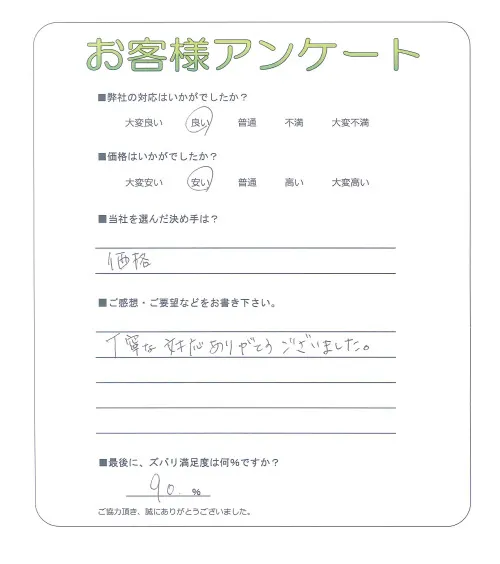 お客様アンケート
■弊社の対応はいかがでしたか？
大変良い 良い 普通 不満 大変不満
■価格はいかがでしたか？
大変安い 安い 普通 高い 大変高い
■当社を選んだ決め手は？
価格
■ご感想・ご要望などをお書き下さい。
丁寧な対応ありがとうございました。
■最後に、ズバリ満足度は何%ですか？
90. %
ご協力頂き、誠にありがとうございました。